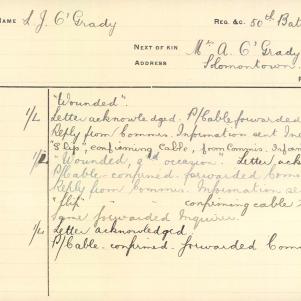 NAME L J. O'Grady REG. &C. 50th Bat
NEXT OF KIN Mrs A. O'Grady
ADDRESS Solomontown.
"Wounded".
1/L Letter acknowledged. P/Cable forwarded
Reply from Commis. Information sent
"Slip", confirming Cable, from Commis.
"Wounded, 2nd occasion". Letter ack
P/Cable - confirmed - forwarded Comm
Reply from Commis. Information sen
"Slip" " " confirming cable
Same forwarded Inquirer.
1/L Letter acknowledged
P/Cable - confirmed - forwarded Com